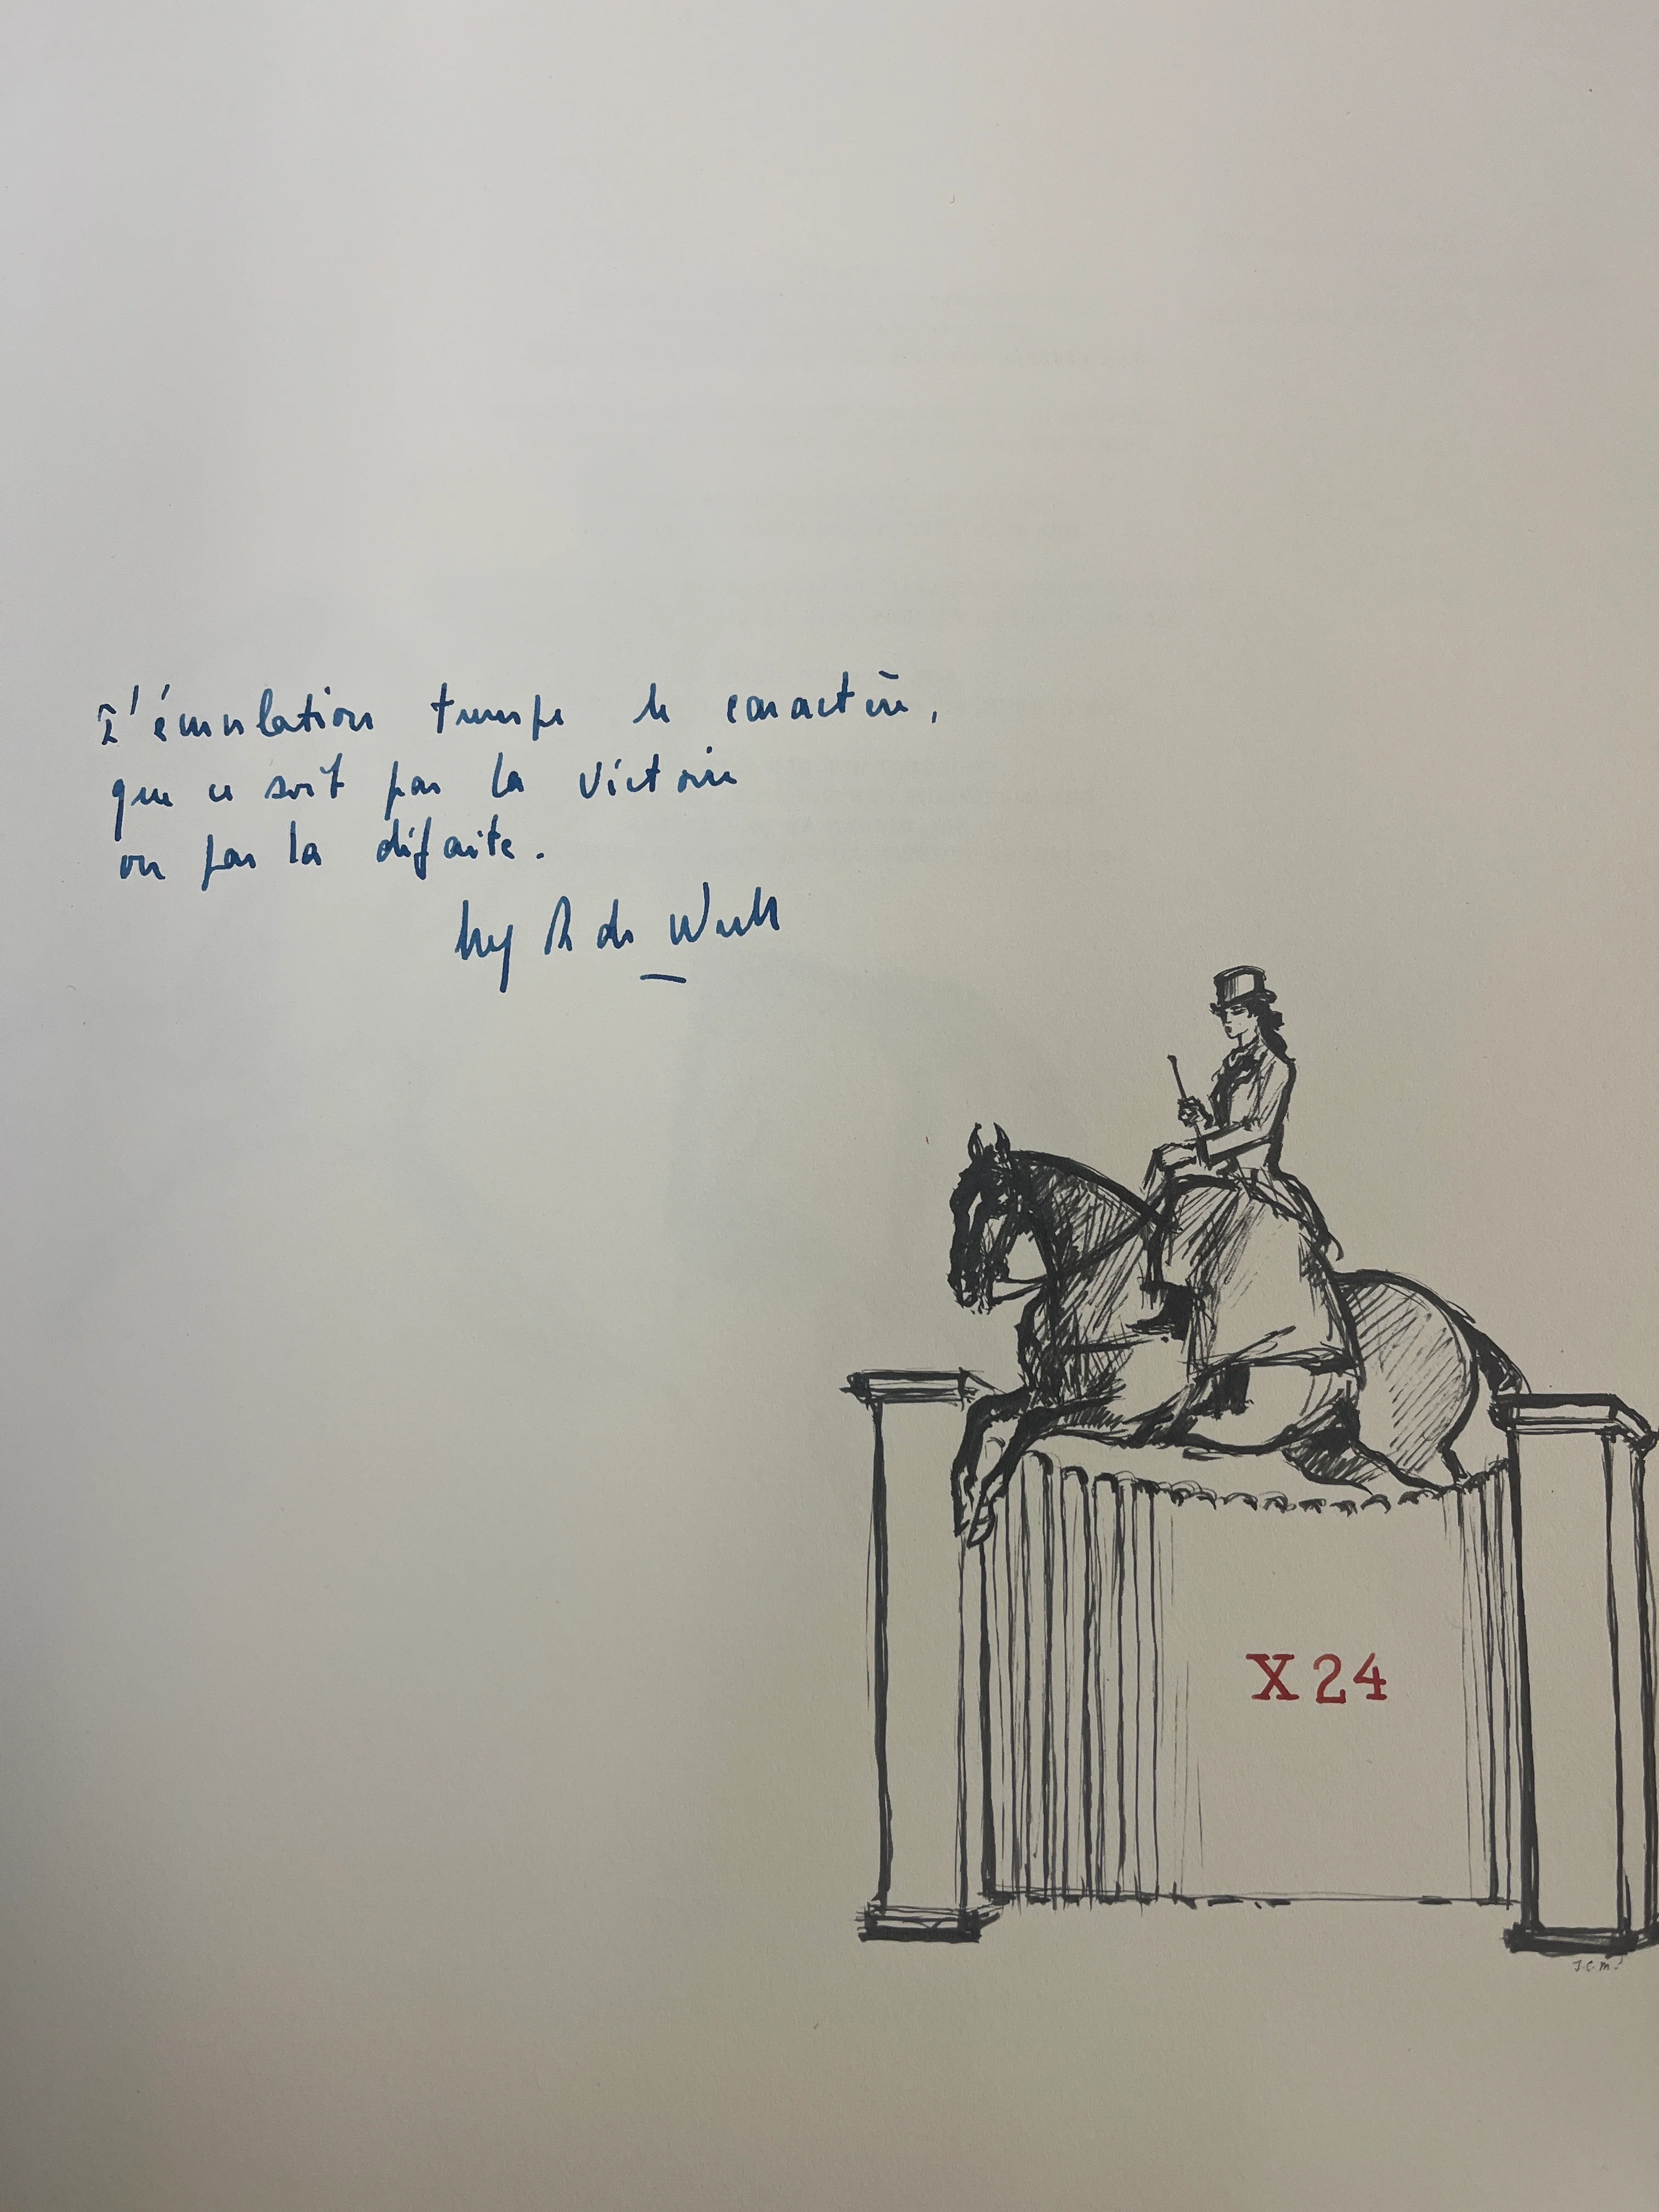 L'émulation trempe le caractère,
que ce soit par la victoire
ou par la défaite.
de
X 24
J.C.M.